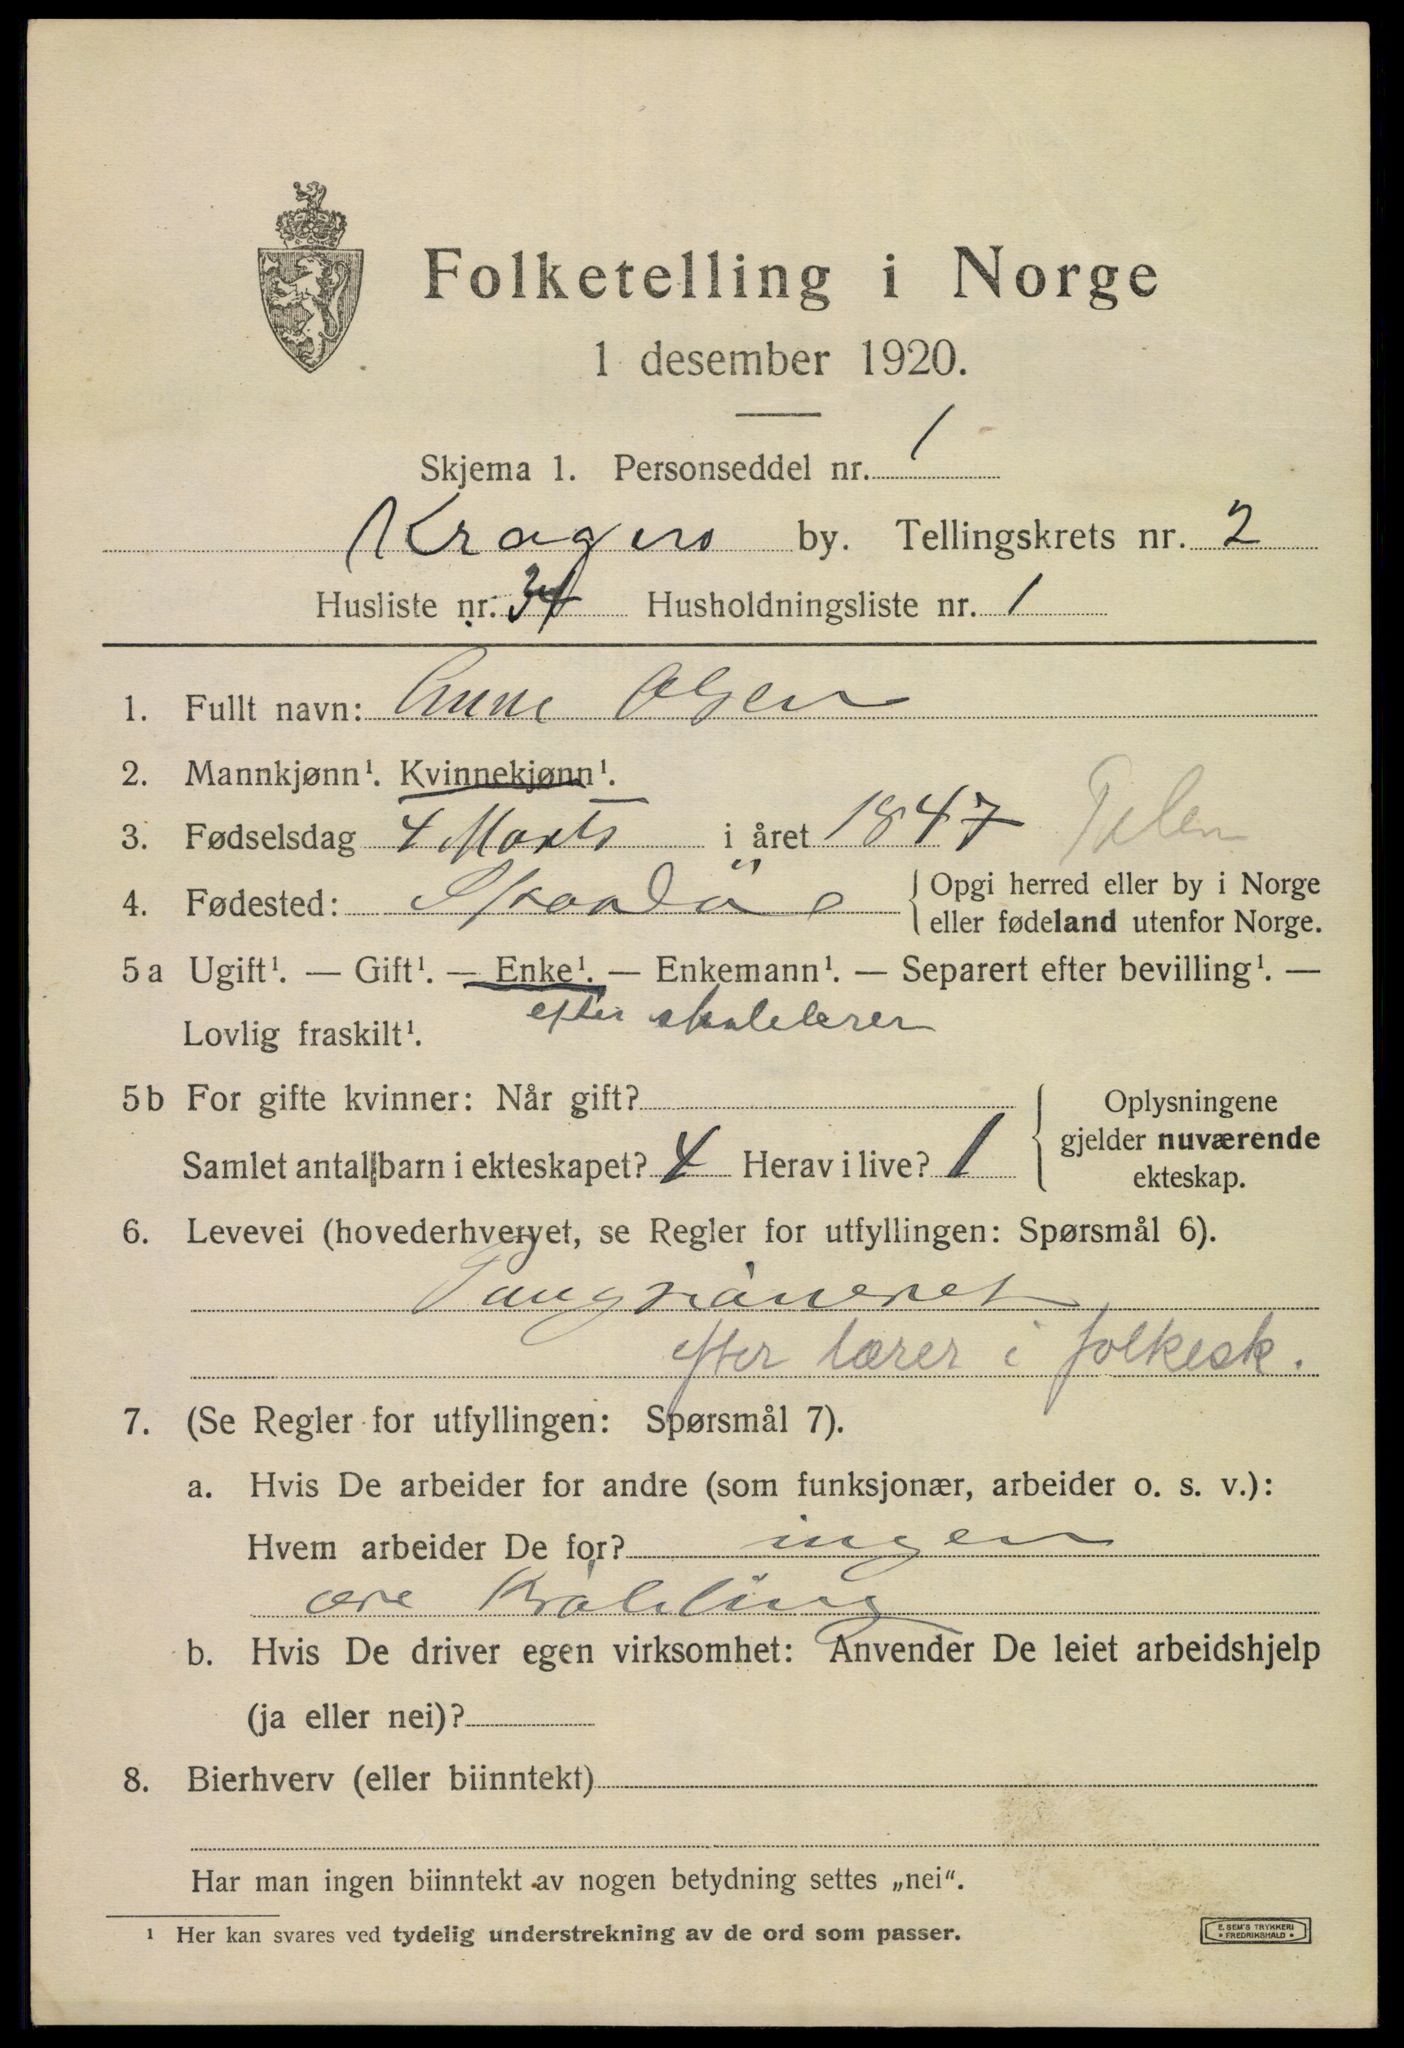 Folketelling i Norge
1 desember 1920.
Skjema 1. Personseddel nr. 1
Kragerø by. Tellingskrets nr. 2
Husliste nr. 34 Husholdningsliste nr. 1
1. Fullt navn: Anne Olsen
2. Mannkjønn¹. Kvinnekjønn¹.
3. Fødselsdag 4 Marts i året 1847
4. Fødested: Skaadö { Opgi herred eller by i Norge
eller fødeland utenfor Norge.
5a Ugift¹. — Gift¹. — Enke¹. — Enkemann¹. — Separert efter bevilling¹. —
efter skolelærer
Lovlig fraskilt¹.
5b For gifte kvinner: Når gift?
Samlet antal barn i ekteskapet? 4 Herav i live? 1
{ Oplysningene
gjelder nuværende
ekteskap.
6. Levevei (hovederhvervet, se Regler for utfyllingen: Spørsmål 6).
Pangsioneret
efter lærer i folkesk.
7. (Se Regler for utfyllingen: Spørsmål 7).
a. Hvis De arbeider for andre (som funksjonær, arbeider o. s. v.):
Hvem arbeider De for? ingen
b. Hvis De driver egen virksomhet: Anvender De leiet arbeidshjelp
(ja eller nei)?
8. Bierhverv (eller biinntekt)
Har man ingen biinntekt av nogen betydning settes „nei“.
¹ Her kan svares ved tydelig understrekning av de ord som passer.
E. SEM'S TRYKKERI
• FREDRIKSHALD •